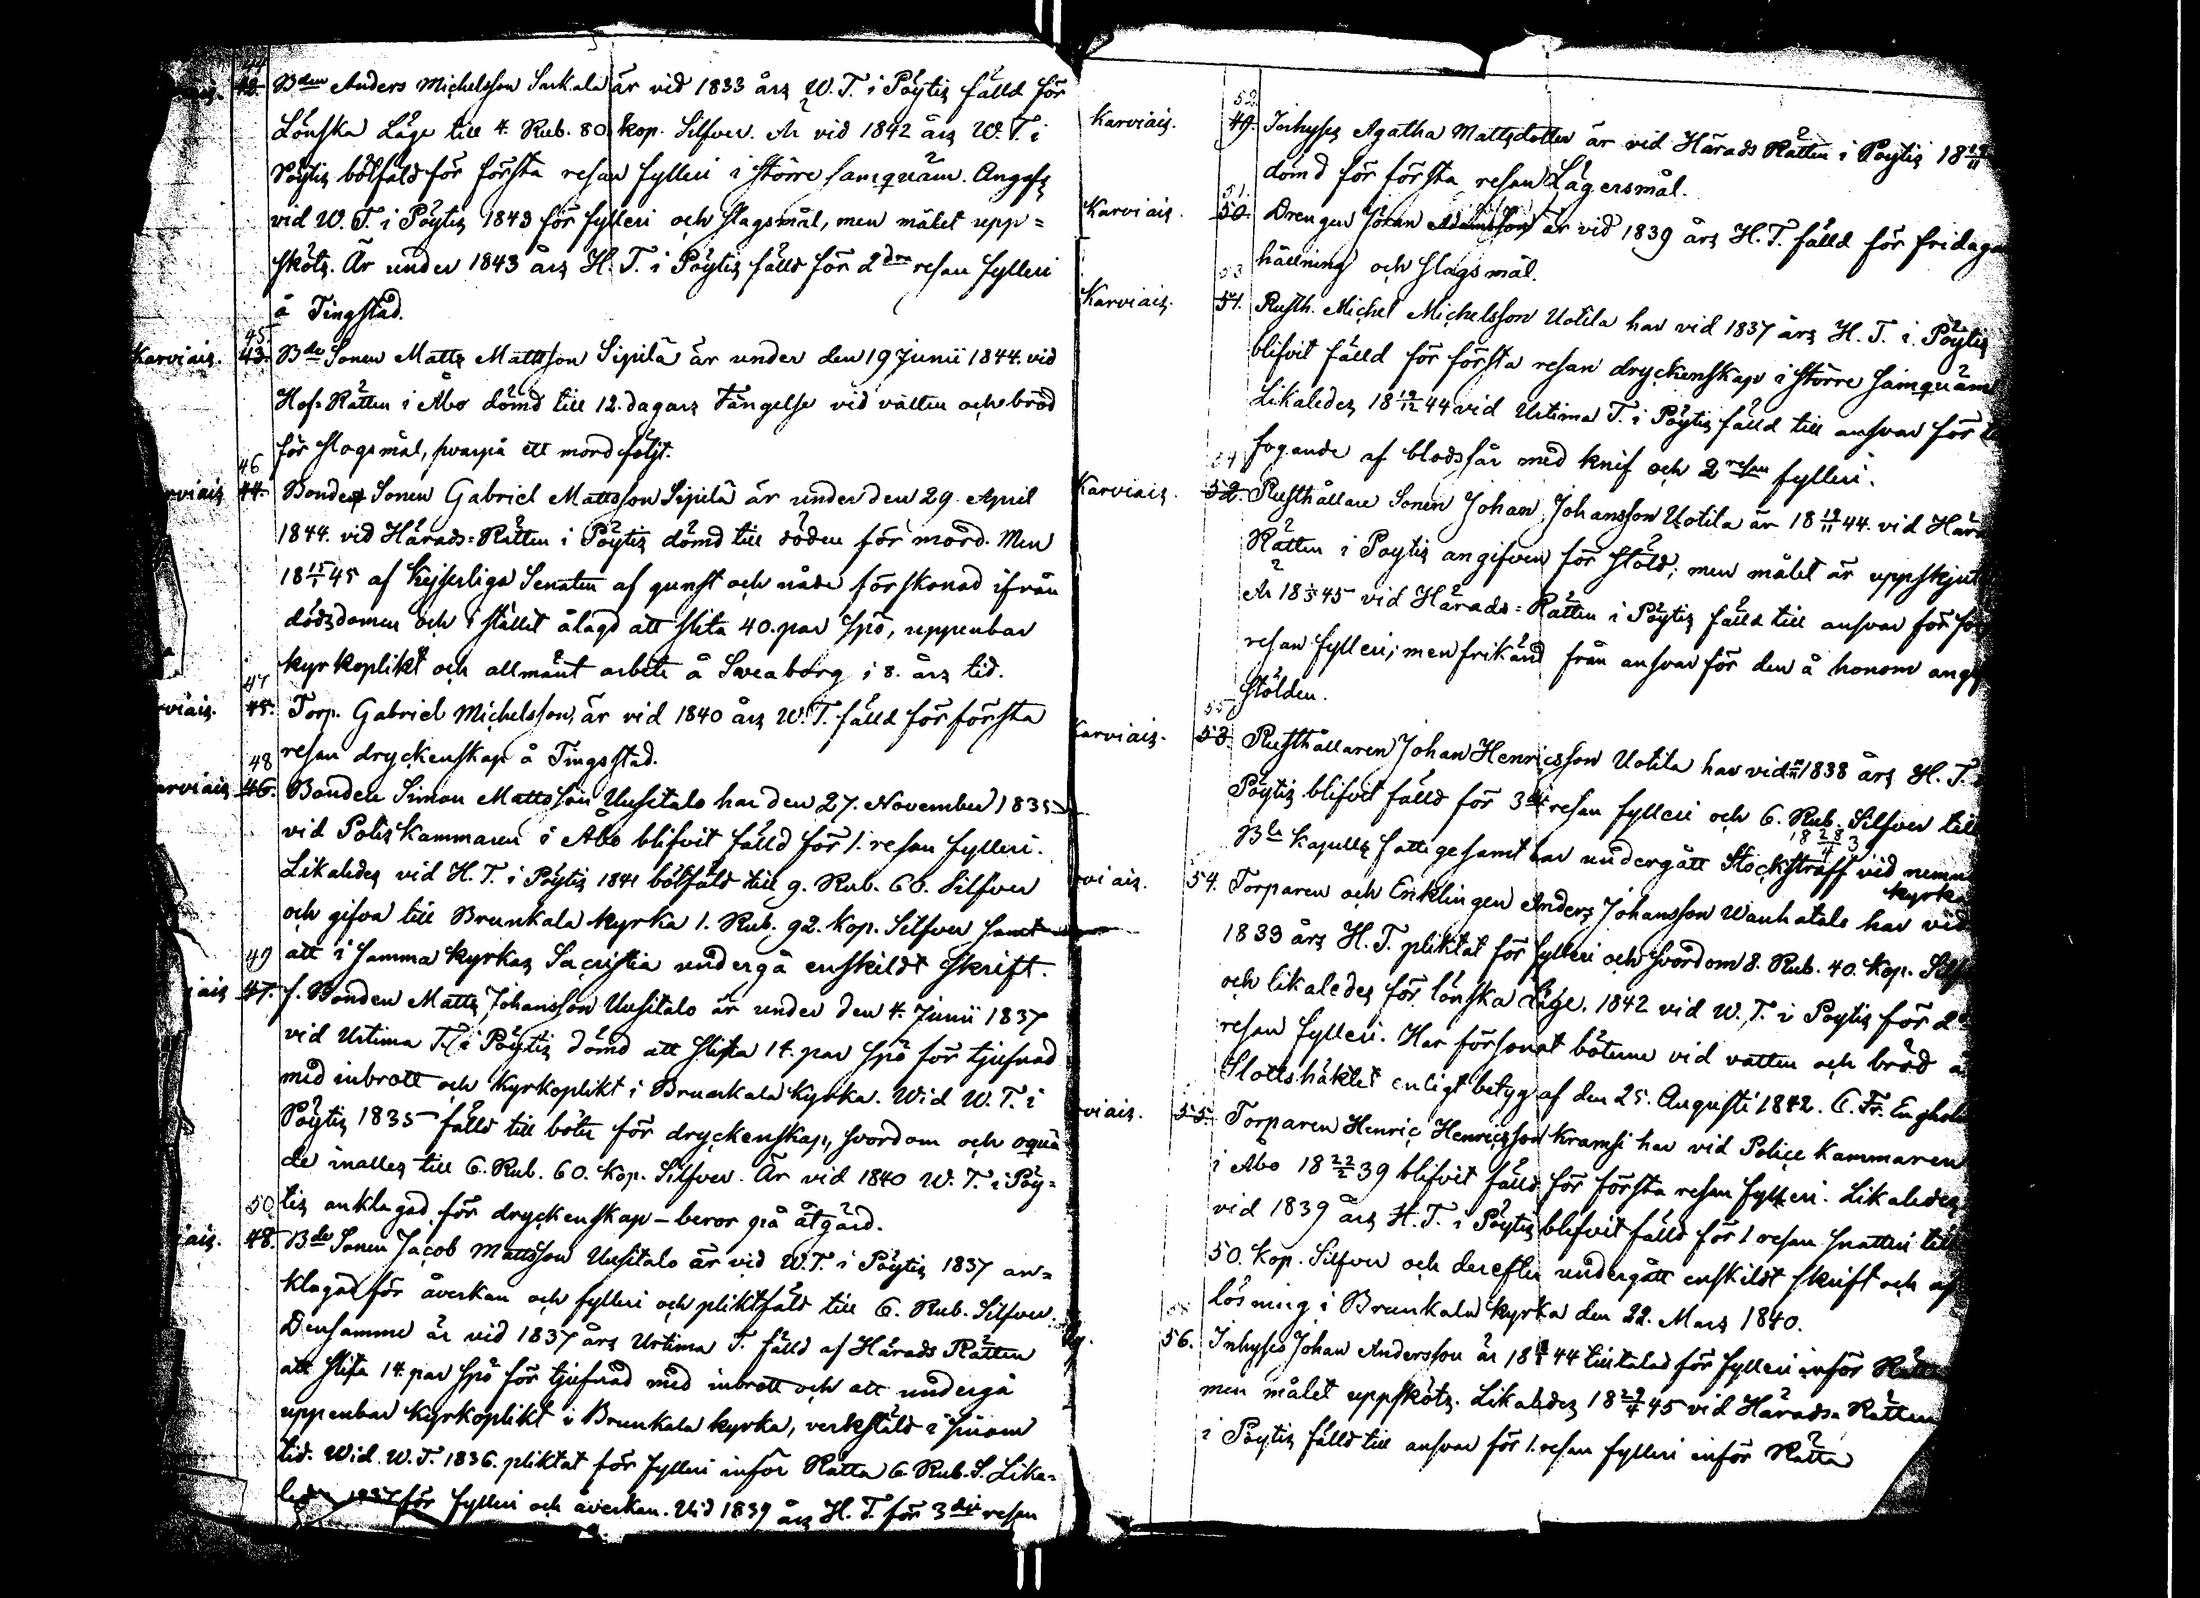 44
42. Bden Anders Michelsson Sarkala är vid 1833 års W. T. i Pöytis fälld för
Lönska Läge till 4. Rub. 80 kop. Silfver. Är vid 1842 års W. T. i
Pöytis bötfäld för första resan fylleri i större samquäm. Angafs
vid W. T. i Pöytis 1843 för fylleri och slagsmål, men målet upp=
sköts. Är under 1843 års H. T. i Pöytis fälld för 2dra resan fylleri
å Tingstad.
45.
Karviais. 43. Bde Sonen Matts Mattsson Sipilä är under den 19 Junii 1844. vid
Hof-Rätten i Åbo dömd till 12. dagars Fängelse vid vatten och bröd
för slagsmål, hvarpå ett mord följt.
46
rviais 44. Bonde Sonen Gabriel Mattsson Sipilä är under den 29. April
1844. vid Härads=Rätten i Pöytis dömd till döden för mord. Men
18 15/1 45 af Kejserliga Senaten af gunst och nåde förskonad ifrån
dödsdomen och i stället ålagd att slita 40. par spö, uppenbar
kyrkoplikt och allmänt arbete å Sveaborg i 8. års tid.
47
rviais. 45. Torp. Gabriel Michelsson, är vid 1840 års W. T. fälld för första
resan dryckenskap å Tingsstad.
48
arviais 46. Bonden Simon Mattsson Uusitalo har den 27. November 1835
vid Poliskammaren i Åbo blifvit fälld för 1. resan fylleri.
Likaledes vid H. T. i Pöytis 1841 bötfäld till 9. Rub. 60. Silfver
och gifva till Brunkala kyrka 1. Rub. 92. kop. Silfver samt
att i samma kyrkas Sacristia undergå enskildt skrift.
49
iais 47. f. Bonden Matts Johansson Uusitalo är under den 4. Junii 1837
vid Urtima T. i Pöytis dömd att slita 14. par spö för tjufnad
med inbrott och kyrkoplikt i Brunkala Kyrka. Wid W. T. i
Pöytis 1835 fälld till böter för dryckenskap, svordom och oquä
de inalles till 6. Rub. 60. kop. Silfver. Är vid 1840 W. T. i Pöy=
tis anklagad för dryckenskap – beror på åtgärd.
50
iais. 48. Bde Sonen Jacob Mattsson Uusitalo är vid W. T. i Pöytis 1837 an=
klagad för åverkan och fylleri och pliktfäld till 6. Rub. Silfver.
Densamme är vid 1837 års Urtima T. fälld af Härads Rätten
att slita 14. par spö för tjufnad med inbrott och att undergå
uppenbar kyrkoplikt i Brunkala kyrka, verkstäld i sinom
tid. Wid. W. T. 1836. pliktat för fylleri inför Rätta 6. Rub. S. Lika=
ledes 1837 för fylleri och åverkan. Vid 1839 års H. T. för 3dje resan
52.
Karviais. 49. Inhyses Agatha Mattsdotter är vid Härads Rätten i Pöytis 18
dömd för första resan Lägersmål.
51.
Karviais. 50. Drengen Johan Adamsson är vid 1839 års H. T. fälld för fridags
hållning och slagsmål.
53
Karviais. 51. Rusth. Michel Michelsson Uotila har vid 1837 års H. T. i Pöytis
blifvit fälld för första resan dryckenskap i större samquäm
Likaledes 18 19/12 44 vid Urtima T. i Pöytis fälld till ansvar för til
fogande af blodsår med knif och 2 resan fylleri.
54
Karviais. 52. Rusthållare Sonen Johan Johansson Uotila är 18 19/11 44. vid Härads
Rätten i Pöytis angifven för stöld; men målet är uppskjut
Är 18 45 vid Härads=Rätten i Pöytis fälld till ansvar för för
resan fylleri; men frikänd från ansvar för den å honom ang
stölden.
55
Karviais. 53. Rusthållaren Johan Henricsson Uotila har vid 1838 års H. T.
Pöytis blifvit fälld för 3dje resan fylleri och 6. Rub. Silfver till
Ble Kapells fattige samt har undergått Stockstraff vid nemn
18 28/4 3
kyrka
rviais. 54. Torparen och Enklingen Anders Johansson Wanhatalo har vid
1833 års H. T. pliktat för fylleri och svordom 8. Rub. 40. Kop. Silf
och likaledes för lönska Läge. 1842 vid W. T. i Pöytis för 2
resan fylleri. Har försonat böterne vid vatten och bröd å
Slottshäktet enligt betyg af den 25. Augusti 1842. C. Fr. Enghol
rviais. 55. Torparen Henric Henricsson Kramsi har vid Police kammaren
i Åbo 18 22/2 39 blifvit fälld för första resan fylleri. Likaledes
vid 1839 års H. T. i Pöytis blifvit fälld för 1 resan snatteri till
50. Kop. Silfver och derefter undergått enskildt skrift och af
lösning i Brunkala kyrka den 22. Mars 1840.
58
56. Inhyses Johan Andersson är 18 44 tilltalad för fylleri inför Rätta
men målet uppsköts. Likaledes 18 29/4 45 vid Härads Rätten
i Pöytis fälld till ansvar för 1. resan fylleri inför Rätta